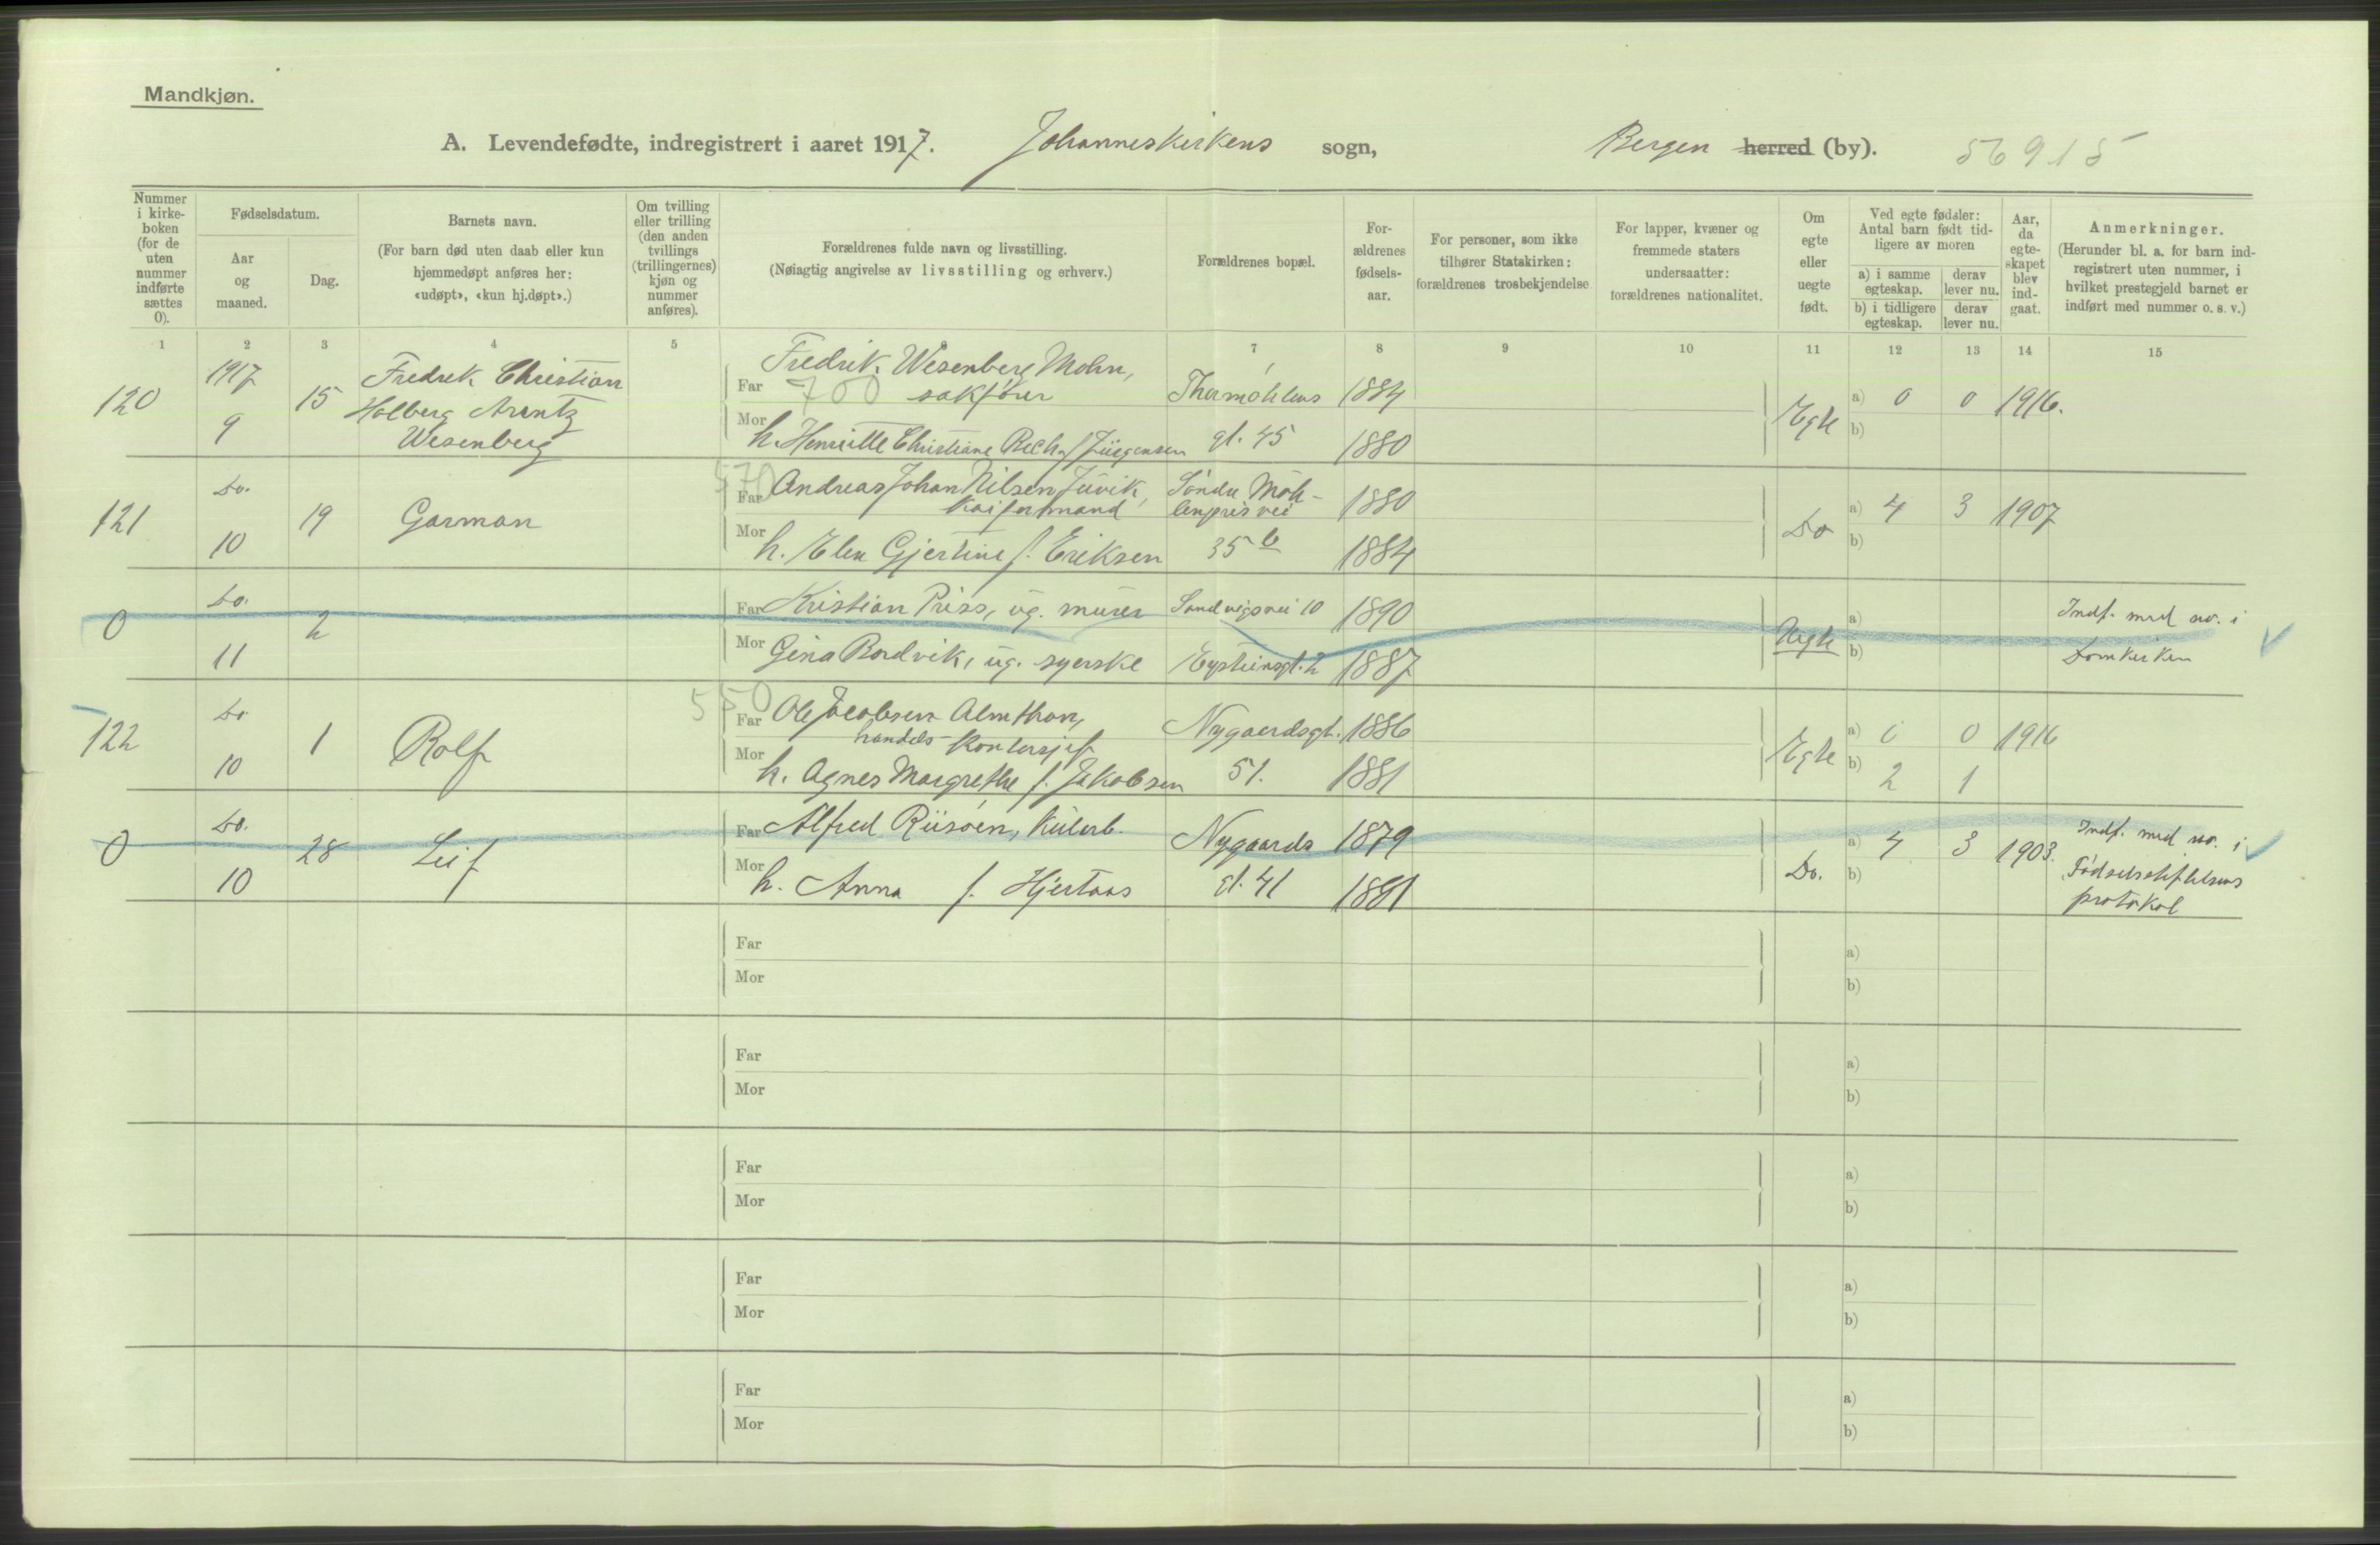 Mandkjøn.
A. Levendefødte, indregistrert i aaret 1917. Johanneskirkens sogn, Bergen herred (by). 56915
Nummer i kirke-boken (for de uten nummer indførte sættes 0).
Fødselsdatum.
Aar og maaned.
Dag.
Barnets navn.
(For barn død uten daab eller kun hjemmedøpt anføres her: «udøpt», «kun hj.døpt».)
Om tvilling eller trilling (den anden tvillings (trillingernes) kjøn og nummer anføres).
Forældrenes fulde navn og livsstilling.
(Nøiagtig angivelse av livsstilling og erhverv.)
Forældrenes bopæl.
For-ældrenes fødsels-aar.
For personer, som ikke tilhører Statskirken: forældrenes trosbekjendelse
For lapper, kvæner og fremmede staters undersaatter: forældrenes nationalitet.
Om egte eller uegte født.
Ved egte fødsler: Antal barn født tid-ligere av moren
a) i samme egteskap.
derav lever nu.
b) i tidligere egteskap.
derav lever nu.
Aar, da egte-skapet blev ind-gaat.
Anmerkninger.
(Herunder bl. a. for barn ind-registrert uten nummer, i hvilket prestegjeld barnet er indført med nummer o. s. v.)
1 2 3 4 5 7 8 9 10 11 12 13 14 15
120 1917 9 15 Fredrik Christian
Holberg Arentz
Wesenberg
Far Fredrik Wesenberg Mohn,
700 sakfører Thormøhlens 1884
Mor h. Henriette Christiane Bech f. Jürgensen gt. 45 1880
Egte a) 0 0 1916.
b)
121 Do. 10 19 Garman
570 Far Andreas Johan Nilsen Juvik, Søndre Møh-
kaiformand lenprisvei 1880
Mor h. Elen Gjertine f. Eriksen 35 b 1884
Do a) 4 3 1907
b)
0 Do. 11 2
Far Kristian Priss, ug. murer Sandvigsvei 10 1890
Mor Gina Bordvik, ug. syerske Eysteinsgt. 2 1887
Uegte a)
b)
Indf. med no. i
Domkirken
122 Do 10 1 Rolf
550 Far Ole Jacobsen Almthon,
handels-kontorsjef Nygaardsgt. 1886
Mor h. Agnes Margrethe f. Jakobsen 51. 1881
Egte a) 0 0 1916
b) 2 1
0 Do. 10 28 Leif
Far Alfred Riisøen, Kulerb. Nygaards 1879
Mor h. Anna f. Hjertaas gt. 41 1881
Do. a) 4 3 1903.
b)
Indf. med no. i
Fødselsstiftelsens
protokol
Far a)
Mor b)
Far a)
Mor b)
Far a)
Mor b)
Far a)
Mor b)
Far a)
Mor b)